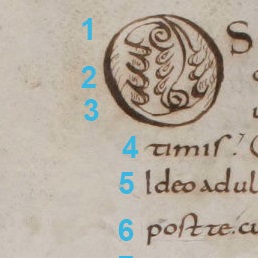 1 S
2
3
4 timis.' 
5 Ideo adul
6 post te. cu